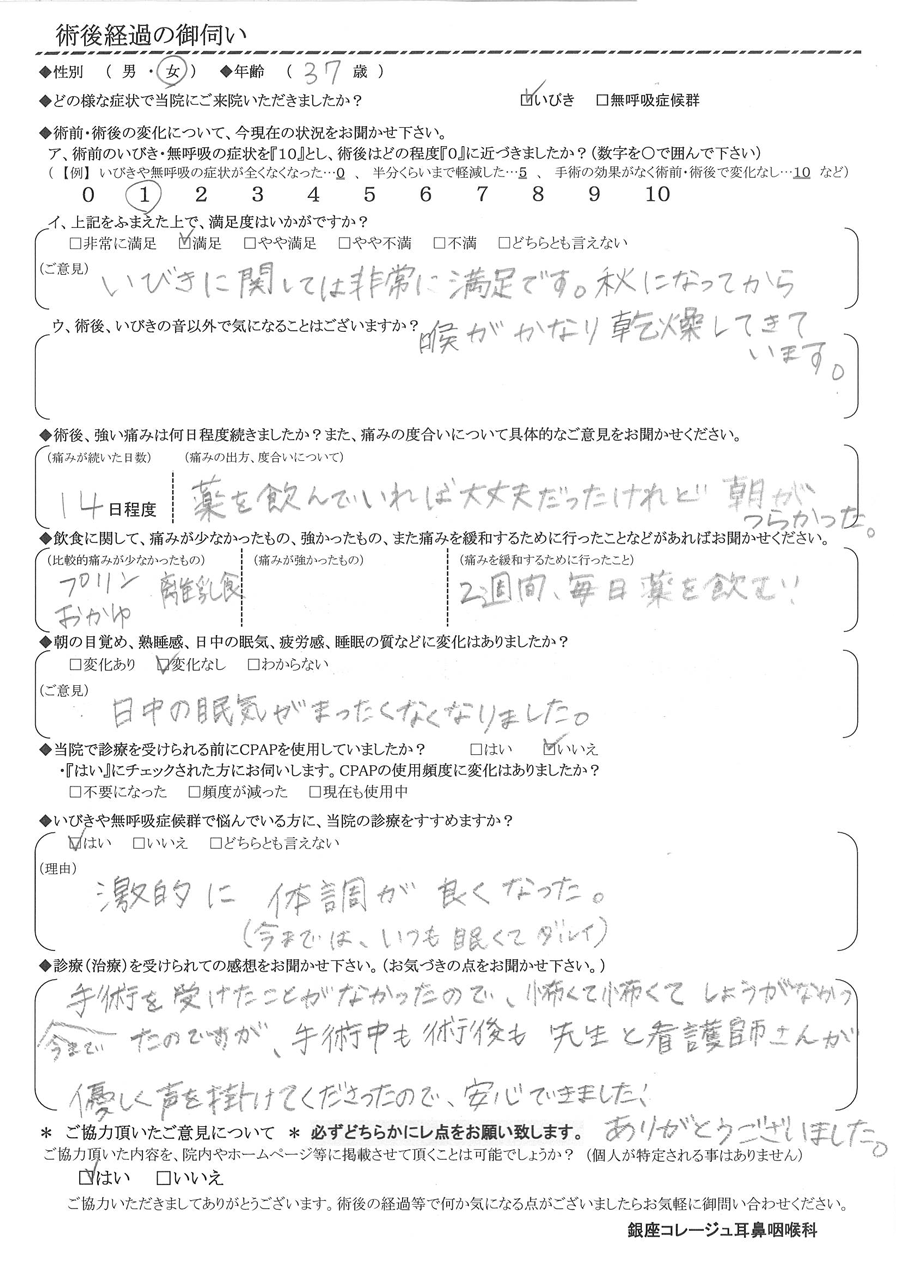 術後経過の御伺い
◆性別 ( 男 ・ 女 ) ◆年齢 ( 37 歳 )
◆どの様な症状で当院にご来院いただきましたか? ☑いびき □無呼吸症候群
◆術前・術後の変化について、今現在の状況をお聞かせ下さい。
ア、術前のいびき・無呼吸の症状を『10』とし、術後はどの程度『0』に近づきましたか?(数字を〇で囲んで下さい)
(【例】いびきや無呼吸の症状が全くなくなった…0 、 半分くらいまで軽減した…5 、 手術の効果がなく術前・術後で変化なし…10 など)
0 1 2 3 4 5 6 7 8 9 10
イ、上記をふまえた上で、満足度はいかがですか?
□非常に満足 ☑満足 □やや満足 □やや不満 □不満 □どちらとも言えない
(ご意見)
いびきに関しては非常に満足です。秋になってから
ウ、術後、いびきの音以外で気になることはございますか?
喉がかなり乾燥してきて
います。
◆術後、強い痛みは何日程度続きましたか?また、痛みの度合いについて具体的なご意見をお聞かせください。
(痛みが続いた日数) (痛みの出方、度合いについて)
14日程度 薬を飲んでいれば大丈夫だったけれど 朝が
つらかった。
◆飲食に関して、痛みが少なかったもの、強かったもの、また痛みを緩和するために行ったことなどがあればお聞かせください。
(比較的痛みが少なかったもの) (痛みが強かったもの) (痛みを緩和するために行ったこと)
プリン 離乳食 2週間、毎日薬を飲む!
おかゆ
◆朝の目覚め、熟睡感、日中の眠気、疲労感、睡眠の質などに変化はありましたか?
□変化あり ☑変化なし □わからない
(ご意見)
日中の眠気がまったくなくなりました。
◆当院で診療を受けられる前にCPAPを使用していましたか? □はい ☑いいえ
・『はい』にチェックされた方にお伺いします。CPAPの使用頻度に変化はありましたか?
□不要になった □頻度が減った □現在も使用中
◆いびきや無呼吸症候群で悩んでいる方に、当院の診療をすすめますか?
☑はい □いいえ □どちらとも言えない
(理由)
激的に 体調が 良くなった。
(今までは、いつも眠くてダルイ)
◆診療(治療)を受けられての感想をお聞かせ下さい。(お気づきの点をお聞かせ下さい。)
手術を受けたことがなかったので、怖くて怖くてしょうがなかっ
今まで たのですが、手術中も術後も 先生と看護師さんが
優しく声を掛けてくださったので、安心できました!
* ご協力頂いたご意見について * 必ずどちらかにレ点をお願い致します。 ありがとうございました。
ご協力頂いた内容を、院内やホームページ等に掲載させて頂くことは可能でしょうか? (個人が特定される事はありません)
☑はい □いいえ
ご協力いただきましてありがとうございます。術後の経過等で何か気になる点がございましたらお気軽に御問い合わせください。
銀座コレージュ耳鼻咽喉科